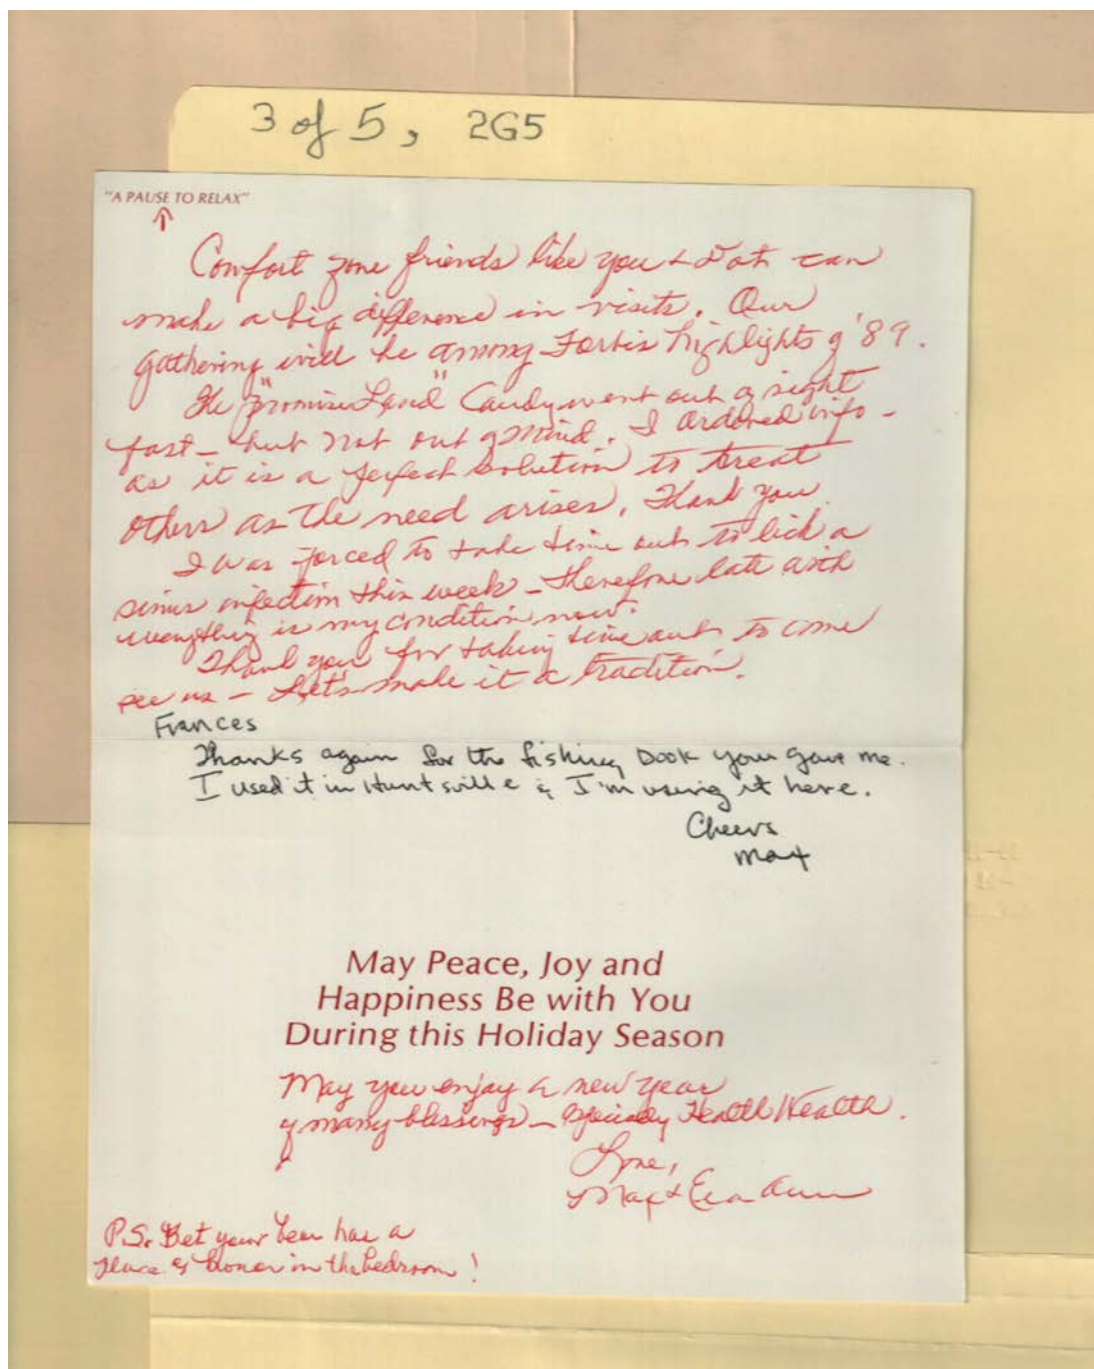 3 of 5, 2G5
"A PAUSE TO RELAX"
Comfort zone friends like you & Dot can
make a big difference in visits. Our
gathering will be among Forbis highlights of '89.
The "Promise Land" Candy went out of sight
fast - but not out of mind. I ordered info -
as it is a perfect solution to treat
others as the need arises. Thank you.
I was forced to take time out to lick a
sinus infection this week - therefore late with
everything is my condition now.
Thank you for taking time out to come
see us - Let's make it a tradition.
Frances
Thanks again for the fishing book you gave me.
I used it in Huntsville & I'm using it here.
Cheers
Max
May Peace, Joy and
Happiness Be with You
During this Holiday Season
May you enjoy a new year
of many blessings - especially Health Wealth.
Love,
Max & Ann
P.S. Bet your bear has a
place of honor in the bedroom!